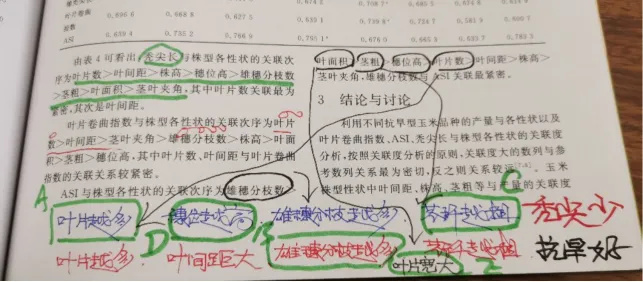 叶片卷曲
指数
ASI 0.659 4 0.735 2 0.766 9 0.795 1
由表 4 可看出,秃尖长与株型各性状的关联次
序为叶片数>叶间距>株高>穗位高>雄穗分枝数
>茎粗>叶面积>茎叶夹角,其中叶片数关联最为
紧密,其次是叶间距。
叶片卷曲指数与株型各性状的关联次序为叶片
数>叶间距>茎叶夹角>雄穗分枝数>株高>叶面
积>茎粗>穗位高,其中叶片数、叶间距与叶片卷曲
指数的关联关系较紧密。
ASI 与株型各性状的关联次序为雄穗分枝数>
叶面积>茎粗>穗位高>叶片数>叶间距>株高>
茎叶夹角,雄穗分枝数与 ASI 关联最紧密。
3 结论与讨论
利用不同抗旱型玉米品种的产量与各性状以及
叶片卷曲指数、ASI、秃尖长与株型各性状的关联度
分析,按照关联度分析的原则,关联度大的数列与参
考数列关系最为密切,反之则关系较远。玉米
株型性状中叶间距、株高、茎粗等与产量的关联度
A 叶片越多 D 穗位越高 B 雄穗分枝越多 C 茎秆越粗 秃尖少
叶片越多 叶间距大 雄穗分枝越多 叶片宽大 茎秆越粗 抗旱好